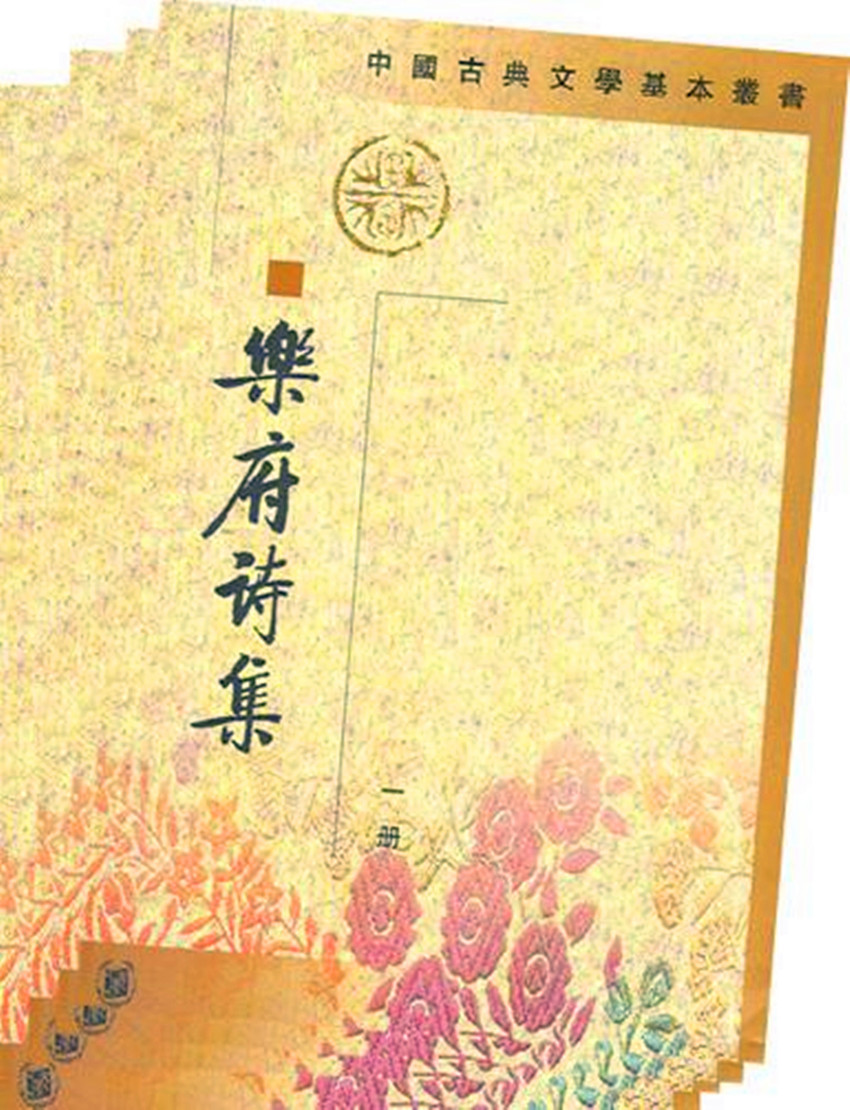 中國古典文學基本叢書
樂府詩集
一册